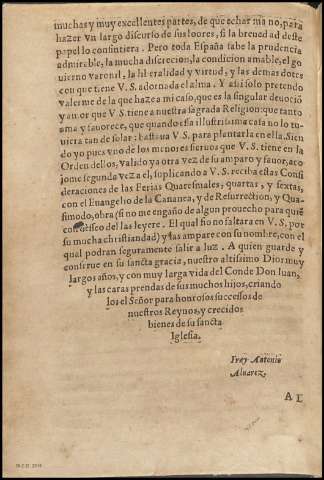 muchas y muy excellentes partes, de que echar mano, para
hazer vn largo discurso de sus loores, si la breuedad deste
papel lo consintiera. Pero toda España sabe la prudencia
admirable, la mucha discrecion, la condicion amable, el go
uierno varonil, la liberalidad y virtud, y las demas dotes
con que tiene V. S. adornada el alma. Y assi solo pretendo
valerme de la que haze a mi caso, que es la singular deuociõ
y amor que V. S. tiene a nuestra sagrada Religion: que tanto
ama y fauorece, que quando essa illustrissima casa no lo tu-
uiera tan de solar: bastaua V. S. para plantarla en ella. Sien
do yo pues vno de los menores sieruos que V. S. tiene en la
Orden dellos, valido ya otra vez de su amparo y fauor, aco
jome segunda vez a el, suplicando a V. S. reciba estas Consi
deraciones de las Ferias Quaresmales, quartas, y sextas,
con el Euangelio de la Cananea, y de Resurrection, y Qua-
simodo, obra (si no me engaño) de algun prouecho para quiẽ
con desseo del las leyere. El qual fio no faltara en V. S. por
su mucha christiandad) y las ampare con su nombre, con el
qual podran seguramente salir a luz. A quien guarde y
conserue en su sancta gracia, nuestro altissimo Dios muy
largos años, y con muy larga vida del Conde Don Iuan,
y las caras prendas de sus muchos hijos, criando
los el Señor para honrosos successos de
nuestros Reynos, y crecidos
bienes de su sancta
Iglesia.
Fray Antonio
Aluarez.
AL